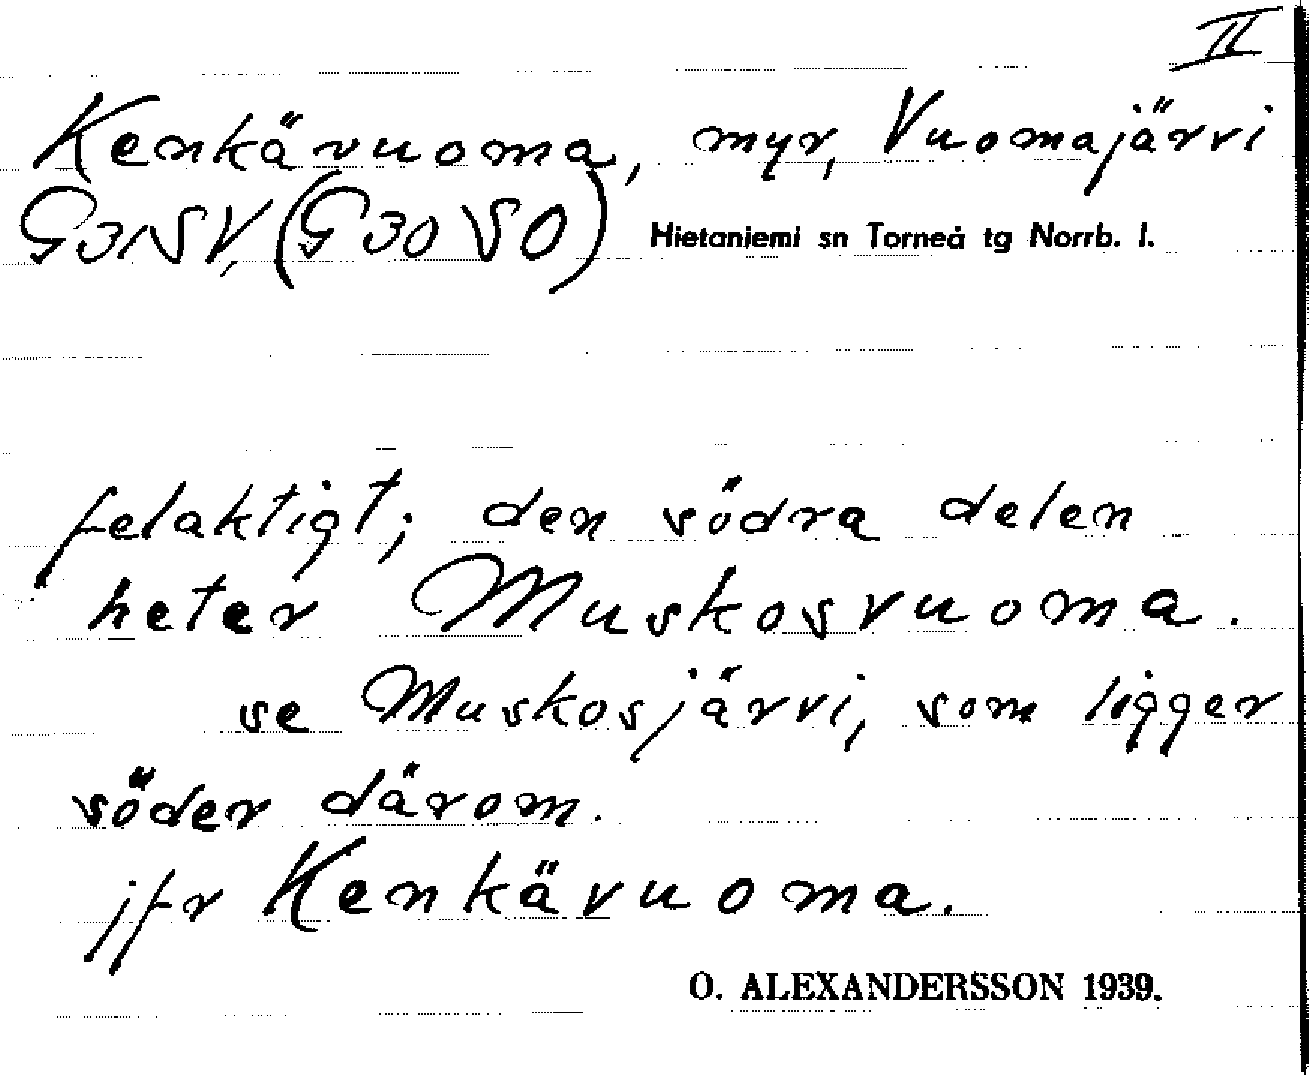 II
Kenkävuoma, myr, Vuomajärvi
G31SV, (G30SO) Hietaniemi sn Torneå tg Norrb. l.
felaktigt; den södra delen
heter Muskosvuoma.
se Muskosjärvi, som ligger
söder därom.
jfr Kenkävuoma.
O. ALEXANDERSSON 1939.